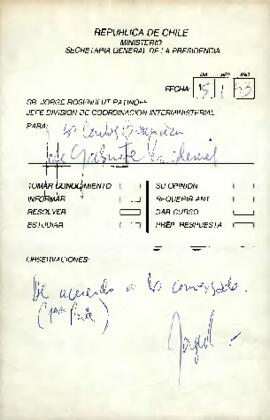 REPUBLICA DE CHILE
MINISTERIO
SECRETARIA GENERAL DE LA PRESIDENCIA
DIA MES AÑO
FECHA: 15 1 93
SR. JORGE ROSENBLUT RATINOFF
JEFE DIVISION DE COORDINACION INTERMINISTERIAL
PARA: Sr Carlos
Jefe Gabinete Presidencial
TOMAR CONOCIMIENTO SU OPINION
INFORMAR REQUERIR ANT.
RESOLVER DAR CURSO
ESTUDIAR PREP. RESPUESTA
OBSERVACIONES:
De acuerdo a lo conversado.
Jorge